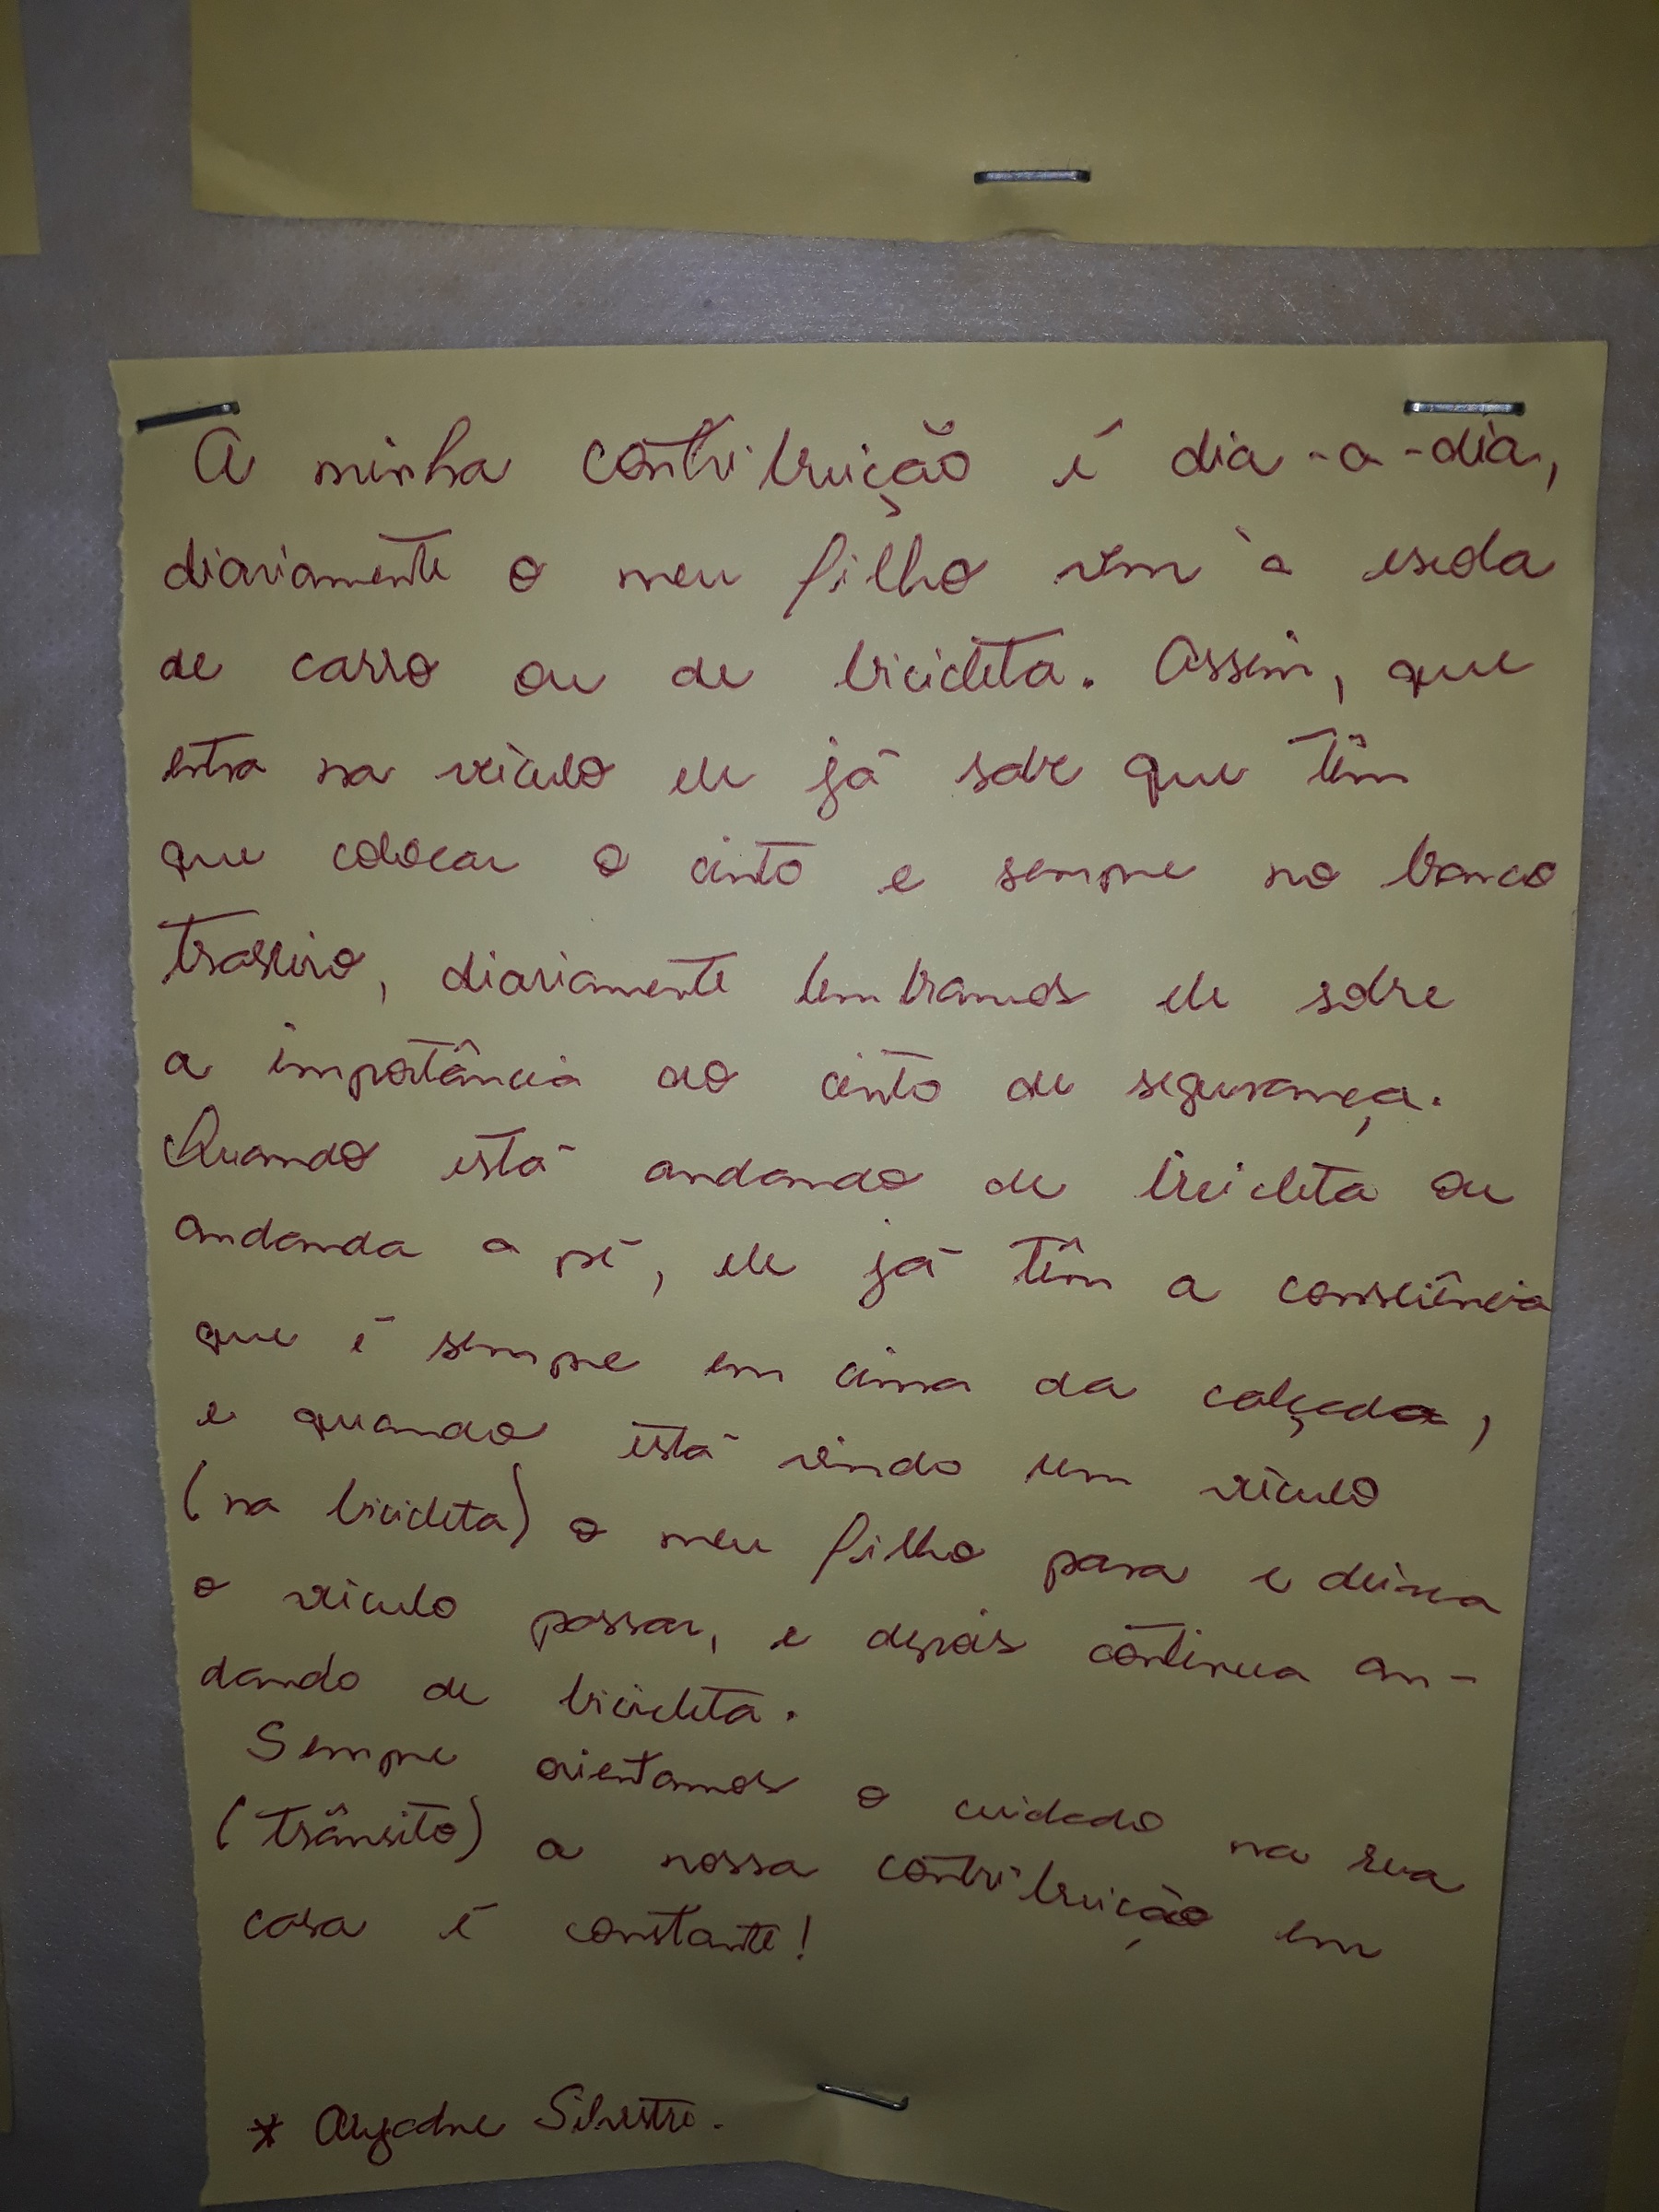 A minha contribuição é dia-a-dia,
diariamente o meu filho vêm à escola
de carro ou de bicicleta. Assim, que
entra na veículo ele já sabe que têm
que colocar o cinto e sempre no banco
traseiro, diariamente lembramos ele sobre
a importância do cinto de segurança.
Quando está andando de bicicleta ou
andanda a pé, ele já têm a consciência
que é sempre em cima da calçada,
e quando está vindo um veículo
(na bicicleta) o meu filho para e deixa
o veículo passar, e depois continua an-
dando de bicicleta.
Sempre orientamos o cuidado na rua
(trânsito) a nossa contribuição em
casa é constante!
* Silvestre.